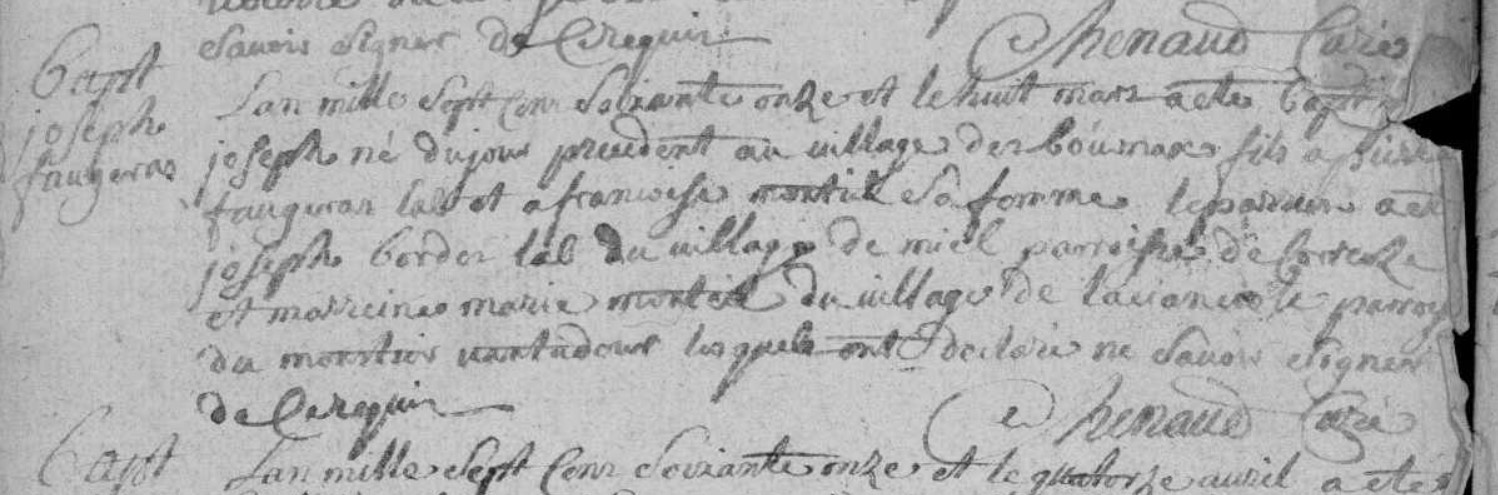 savoir signer de Ce requis Chenaud Curé
Bapt
joseph
faugeras
Lan mille sept cens soixante onze et le huit mars a ete bapt
joseph né du jour precedent au village des boumax fils a pierre
faugeras lab et a francoise monteil sa femme le parrein a ete
joseph bordes lab du village de miel parroisse de Correze
et marreine marie monteil du village de parroi
du monstier vantadour lesquels ont declaré ne savoir signer
de Ce requis Chenaud Curé
Bapt
Lan mille sept cens soixante onze et le quatorze avril a ete